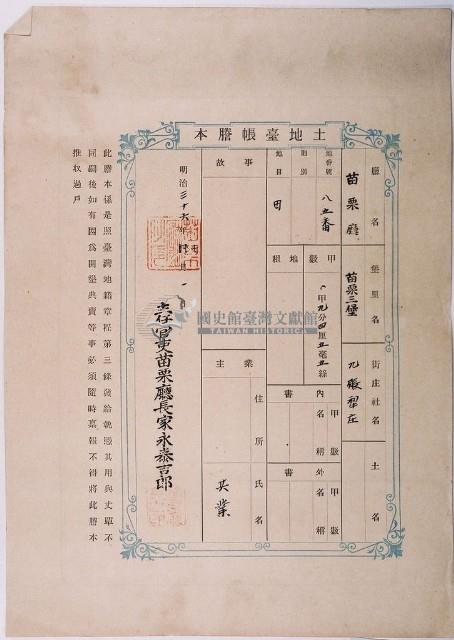 土地臺帳謄本
廳名
苗栗廳
堡里名
苗栗三堡
街庄社名
九張犁庄
土名
地番號
八五番
則別
地目
田
甲數
地租
甲九分四厘五毫五絲
內書
甲數
名稱
外書
甲數
名稱
事故
業主
住所
氏名
吳業
明治三十六年
月
日
臺灣總督府
苗栗廳長家永泰吉郎
此謄本係是照臺灣地籍章程第三條發給執憑其用與丈單不
同嗣後如有因為開墾典賣等事必須隨時稟報不得將此謄本
推收過戶
國史館臺灣文獻館
TAIWAN HISTORICA